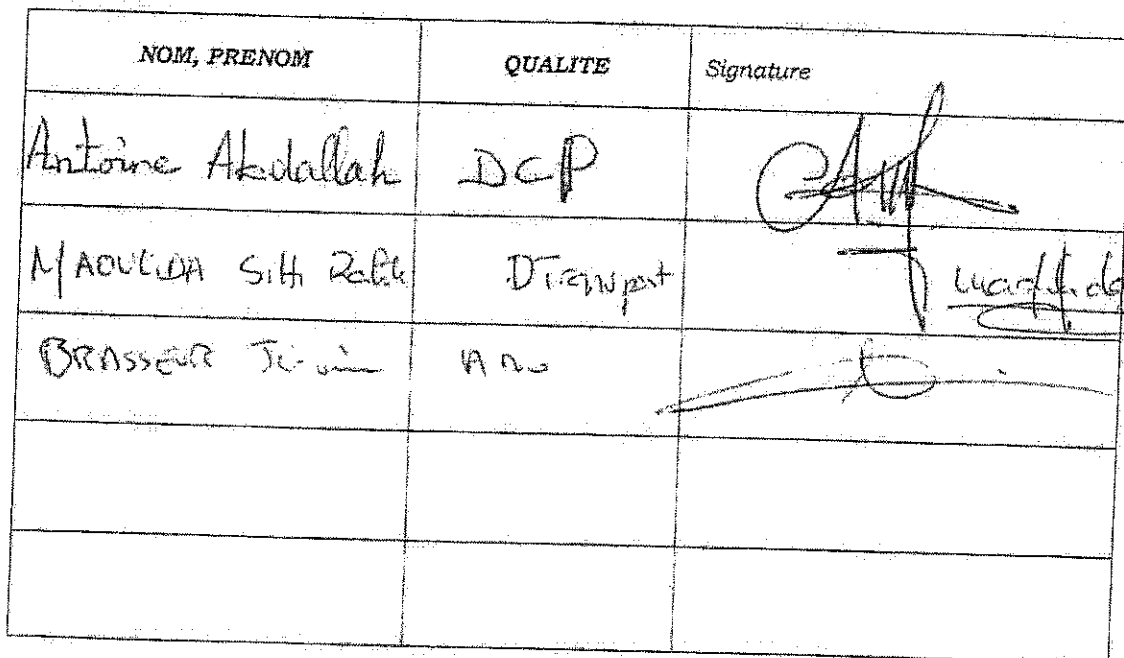 NOM, PRENOM QUALITE Signature
Antoine Abdallah DCP
MAOULIDA Sitti DTransport
BRASSEUR